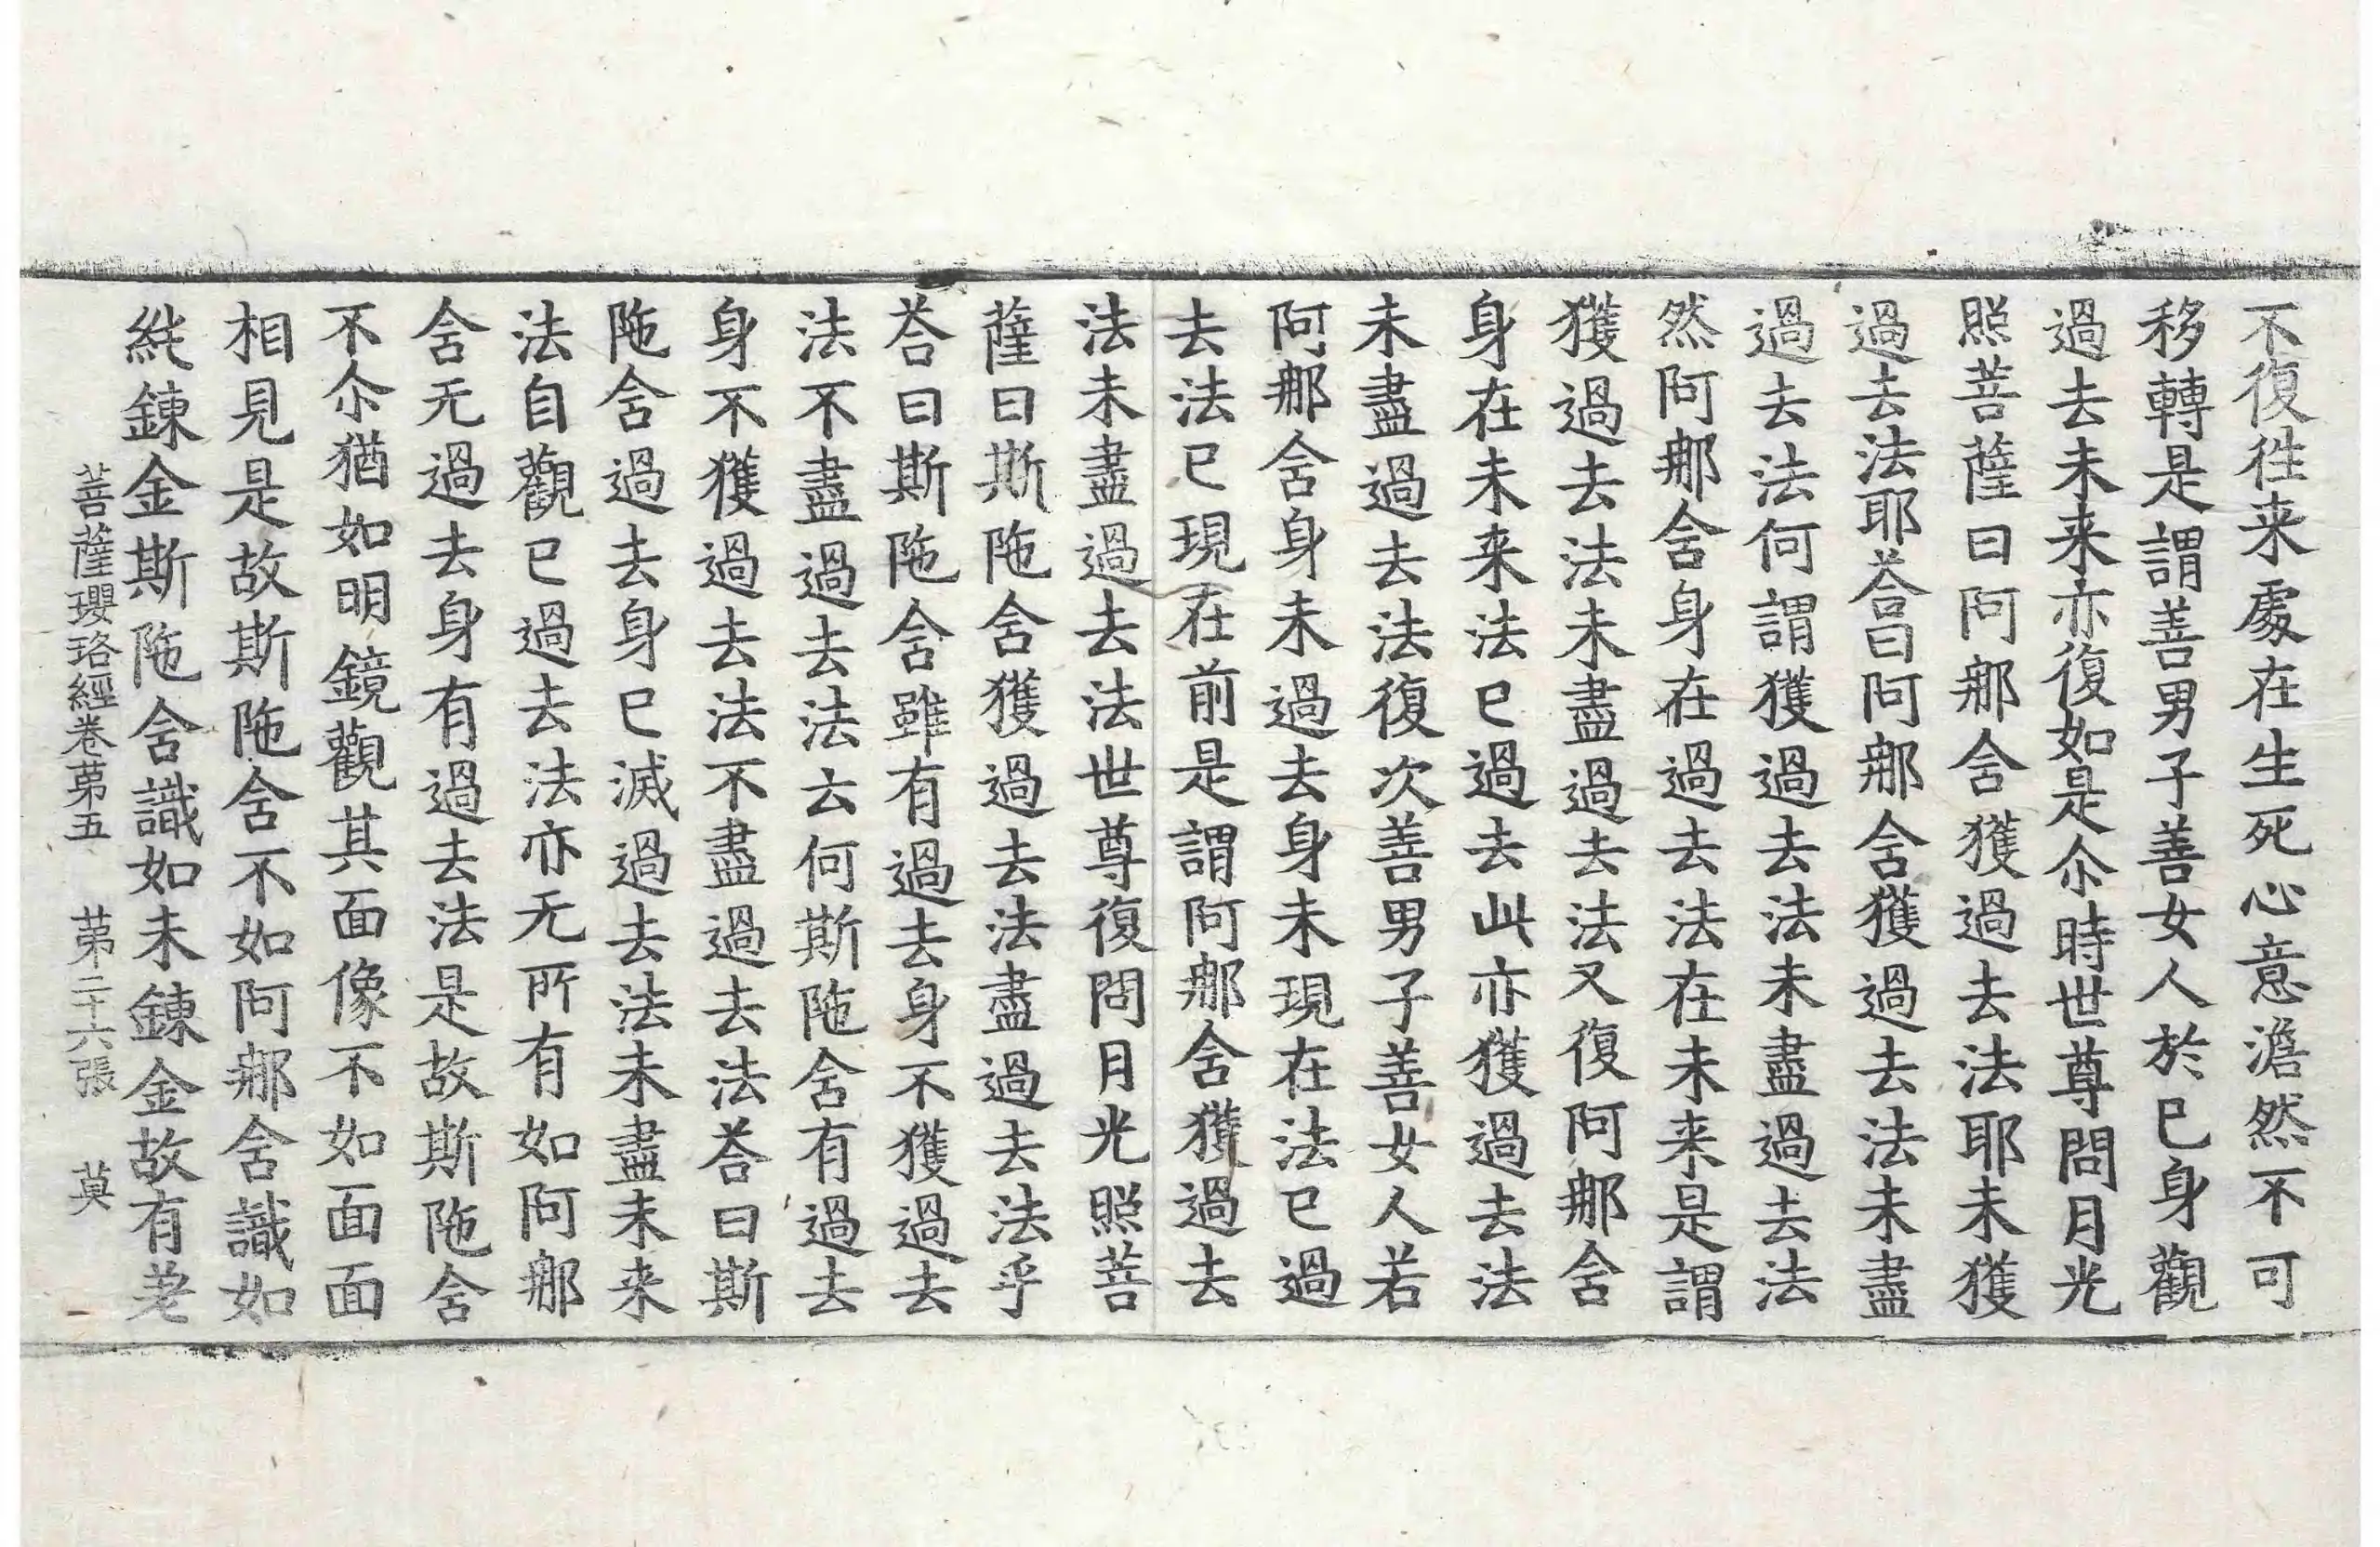 不復徃来處在生死心意澹然不可
移轉是謂善男子善女人於已身觀
過去未来亦復如是尒時世尊問月光
照菩薩曰阿那含獲過去法耶未獲
過去法耶荅曰阿那含獲過去法未盡
過去法何謂獲過去法未盡過去法
然阿那含身在過去法在未来是謂
獲過去法未盡過去法又復阿那含
身在未来法已過去此亦獲過去法
未盡過去法復次善男子善女人若
阿那含身未過去身未現在法已過
去法已現在前是謂阿那含獲過去
法未盡過去法世尊復問月光照菩
薩曰斯陁含獲過去法盡過去法乎
荅曰斯陁含雖有過去身不獲過去
法不盡過去法云何斯陁含有過去
身不獲過去法不盡過去法荅曰斯
陁含過去身已滅過去法未盡未来
法自觀已過去法亦无所有如阿那
含无過去身有過去法是故斯陁含
不尒猶如明鏡觀其面像不如面面
相見是故斯陁含不如阿那含識如
純鍊金斯陁含識如未鍊金故有差
菩薩瓔珞經卷苐五　苐二十六張　莫